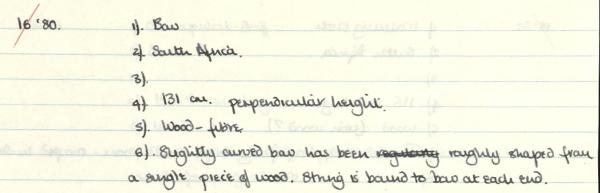 16 '80.
1). Bow
2). South Africa.
3).
4). 131 cm. perpendicular height.
5). Wood-fibre.
6). Slightly curved bow has been regularly roughly shaped from
a single piece of wood. String is bound to bow at each end.